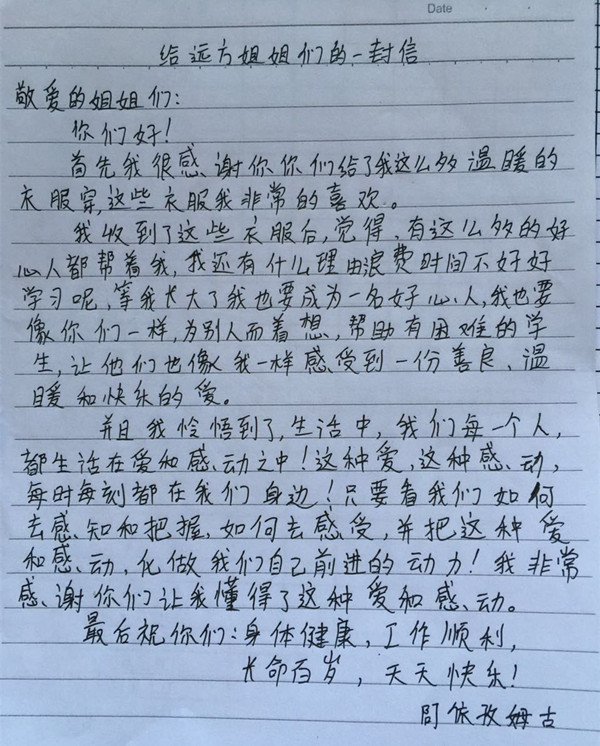 Date
给远方姐姐们的一封信
敬爱的姐姐们：
你们好！
首先我很感谢你你们给了我这么多温暖的
衣服穿,这些衣服我非常的喜欢。
我收到了这些衣服后,觉得,有这么多的好
心人都帮着我,我还有什么理由浪费时间不好好
学习呢,等我长大了我也要成为一名好心人,我也要
像你们一样,为别人而着想,帮助有困难的学
生,让他们也像我一样感受到一份善良、温
暖和快乐的爱。
并且我怜悟到了,生活中,我们每一个人,
都生活在爱和感动之中！这种爱,这种感动,
每时每刻都在我们身边！只要看我们如何
去感知和把握,如何去感受,并把这种爱
和感动,化做我们自己前进的动力！我非常
感谢你们让我懂得了这种爱和感动。
最后祝你们：身体健康,工作顺利,
长命百岁,天天快乐！
阿依孜姆古